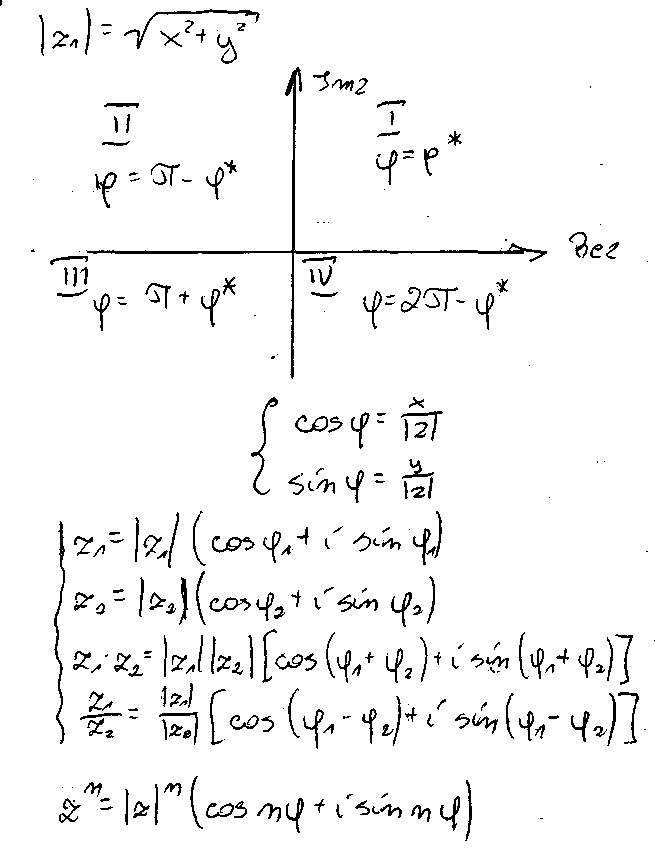 |z₁| = √(x² + y²)
Im z
II I
φ = π - φ* φ = φ*
Re z
III IV
φ = π + φ* φ = 2π - φ*
{ cos φ = x/|z|
sin φ = y/|z|
z₁ = |z₁| (cos φ₁ + i sin φ₁)
z₂ = |z₂| (cos φ₂ + i sin φ₂)
z₁ · z₂ = |z₁||z₂| [cos (φ₁ + φ₂) + i sin (φ₁ + φ₂)]
z₁/z₂ = |z₁|/|z₂| [cos (φ₁ - φ₂) + i sin (φ₁ - φ₂)]
zⁿ = |z|ⁿ (cos nφ + i sin nφ)